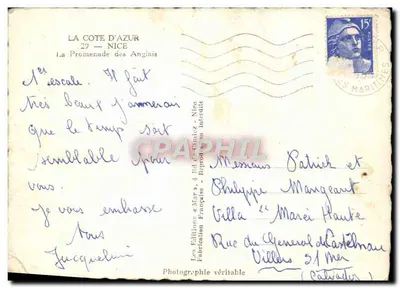 LA COTE D'AZUR
27 — NICE
La Promenade des Anglais
15F
POSTES
MARITIMES
1ère escale. Il fait
très beau j'aimerais
que le temps soit
semblable pour
vous.
Je vous embrasse
tous
Jacqueline
Les Editions "Mar", Nice
Fabrication Française - Reproduction interdite
CPAPHIL.COM
Messieurs Patrick et
Philippe Mangeant
Villa "
Rue du General de Castelnau
Villers S/ Mer
(Calvados)
Photographie véritable